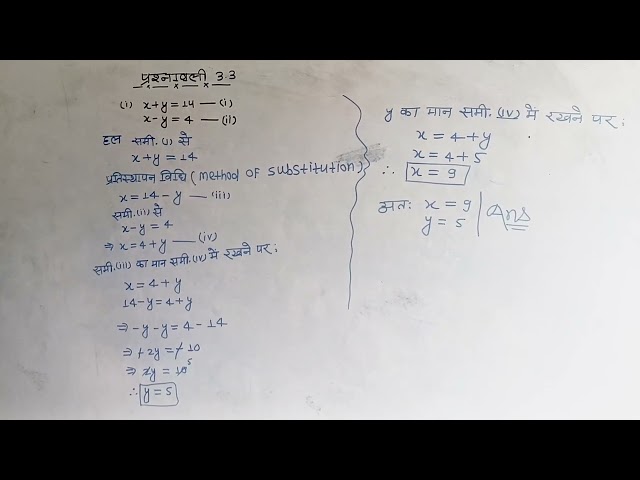 प्रश्नावली 3.3
(i) x+y=14 —(i)
x-y=4 —(ii)
हल समी.(i) से
x+y=14
प्रतिस्थापन विधि (method of substitution)
x=14-y —(iii)
समी.(ii) से
x-y=4
⇒ x=4+y —(iv)
समी.(iii) का मान समी.(iv) में रखने पर:
x=4+y
14-y=4+y
⇒ -y-y=4-14
⇒ -2y=-10
⇒ 2y=10 5
∴ y=5
y का मान समी.(iv) में रखने पर:
x=4+y
x=4+5
∴ x=9
अतः x=9
y=5
Ans